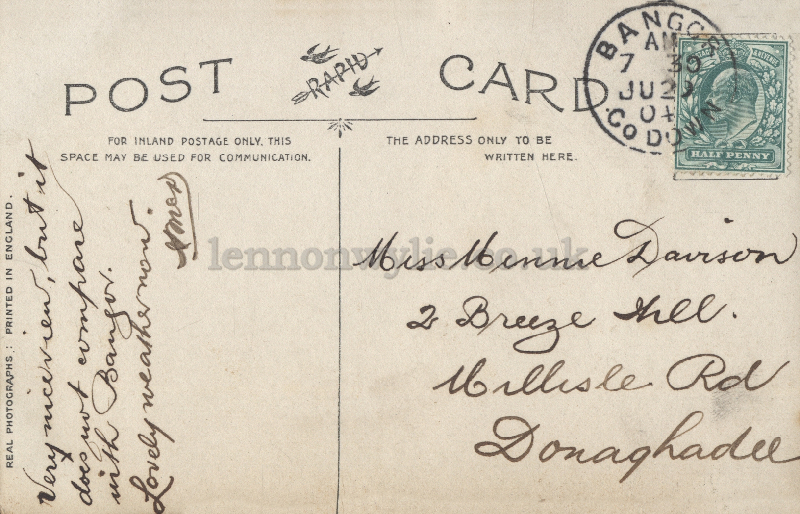 POST CARD
RAPID
FOR INLAND POSTAGE ONLY, THIS
SPACE MAY BE USED FOR COMMUNICATION.
THE ADDRESS ONLY TO BE
WRITTEN HERE.
BANGOR
AM
7 30
JU 29
04
CO DOWN
HALF PENNY
REAL PHOTOGRAPHS: PRINTED IN ENGLAND.
Very nice view, but it
does not compare
with Bangor.
Lovely weather now.
Miss Minnie Davison
2 Breeze Hill.
Millisle Rd
Donaghadee
lennonwylie.co.uk